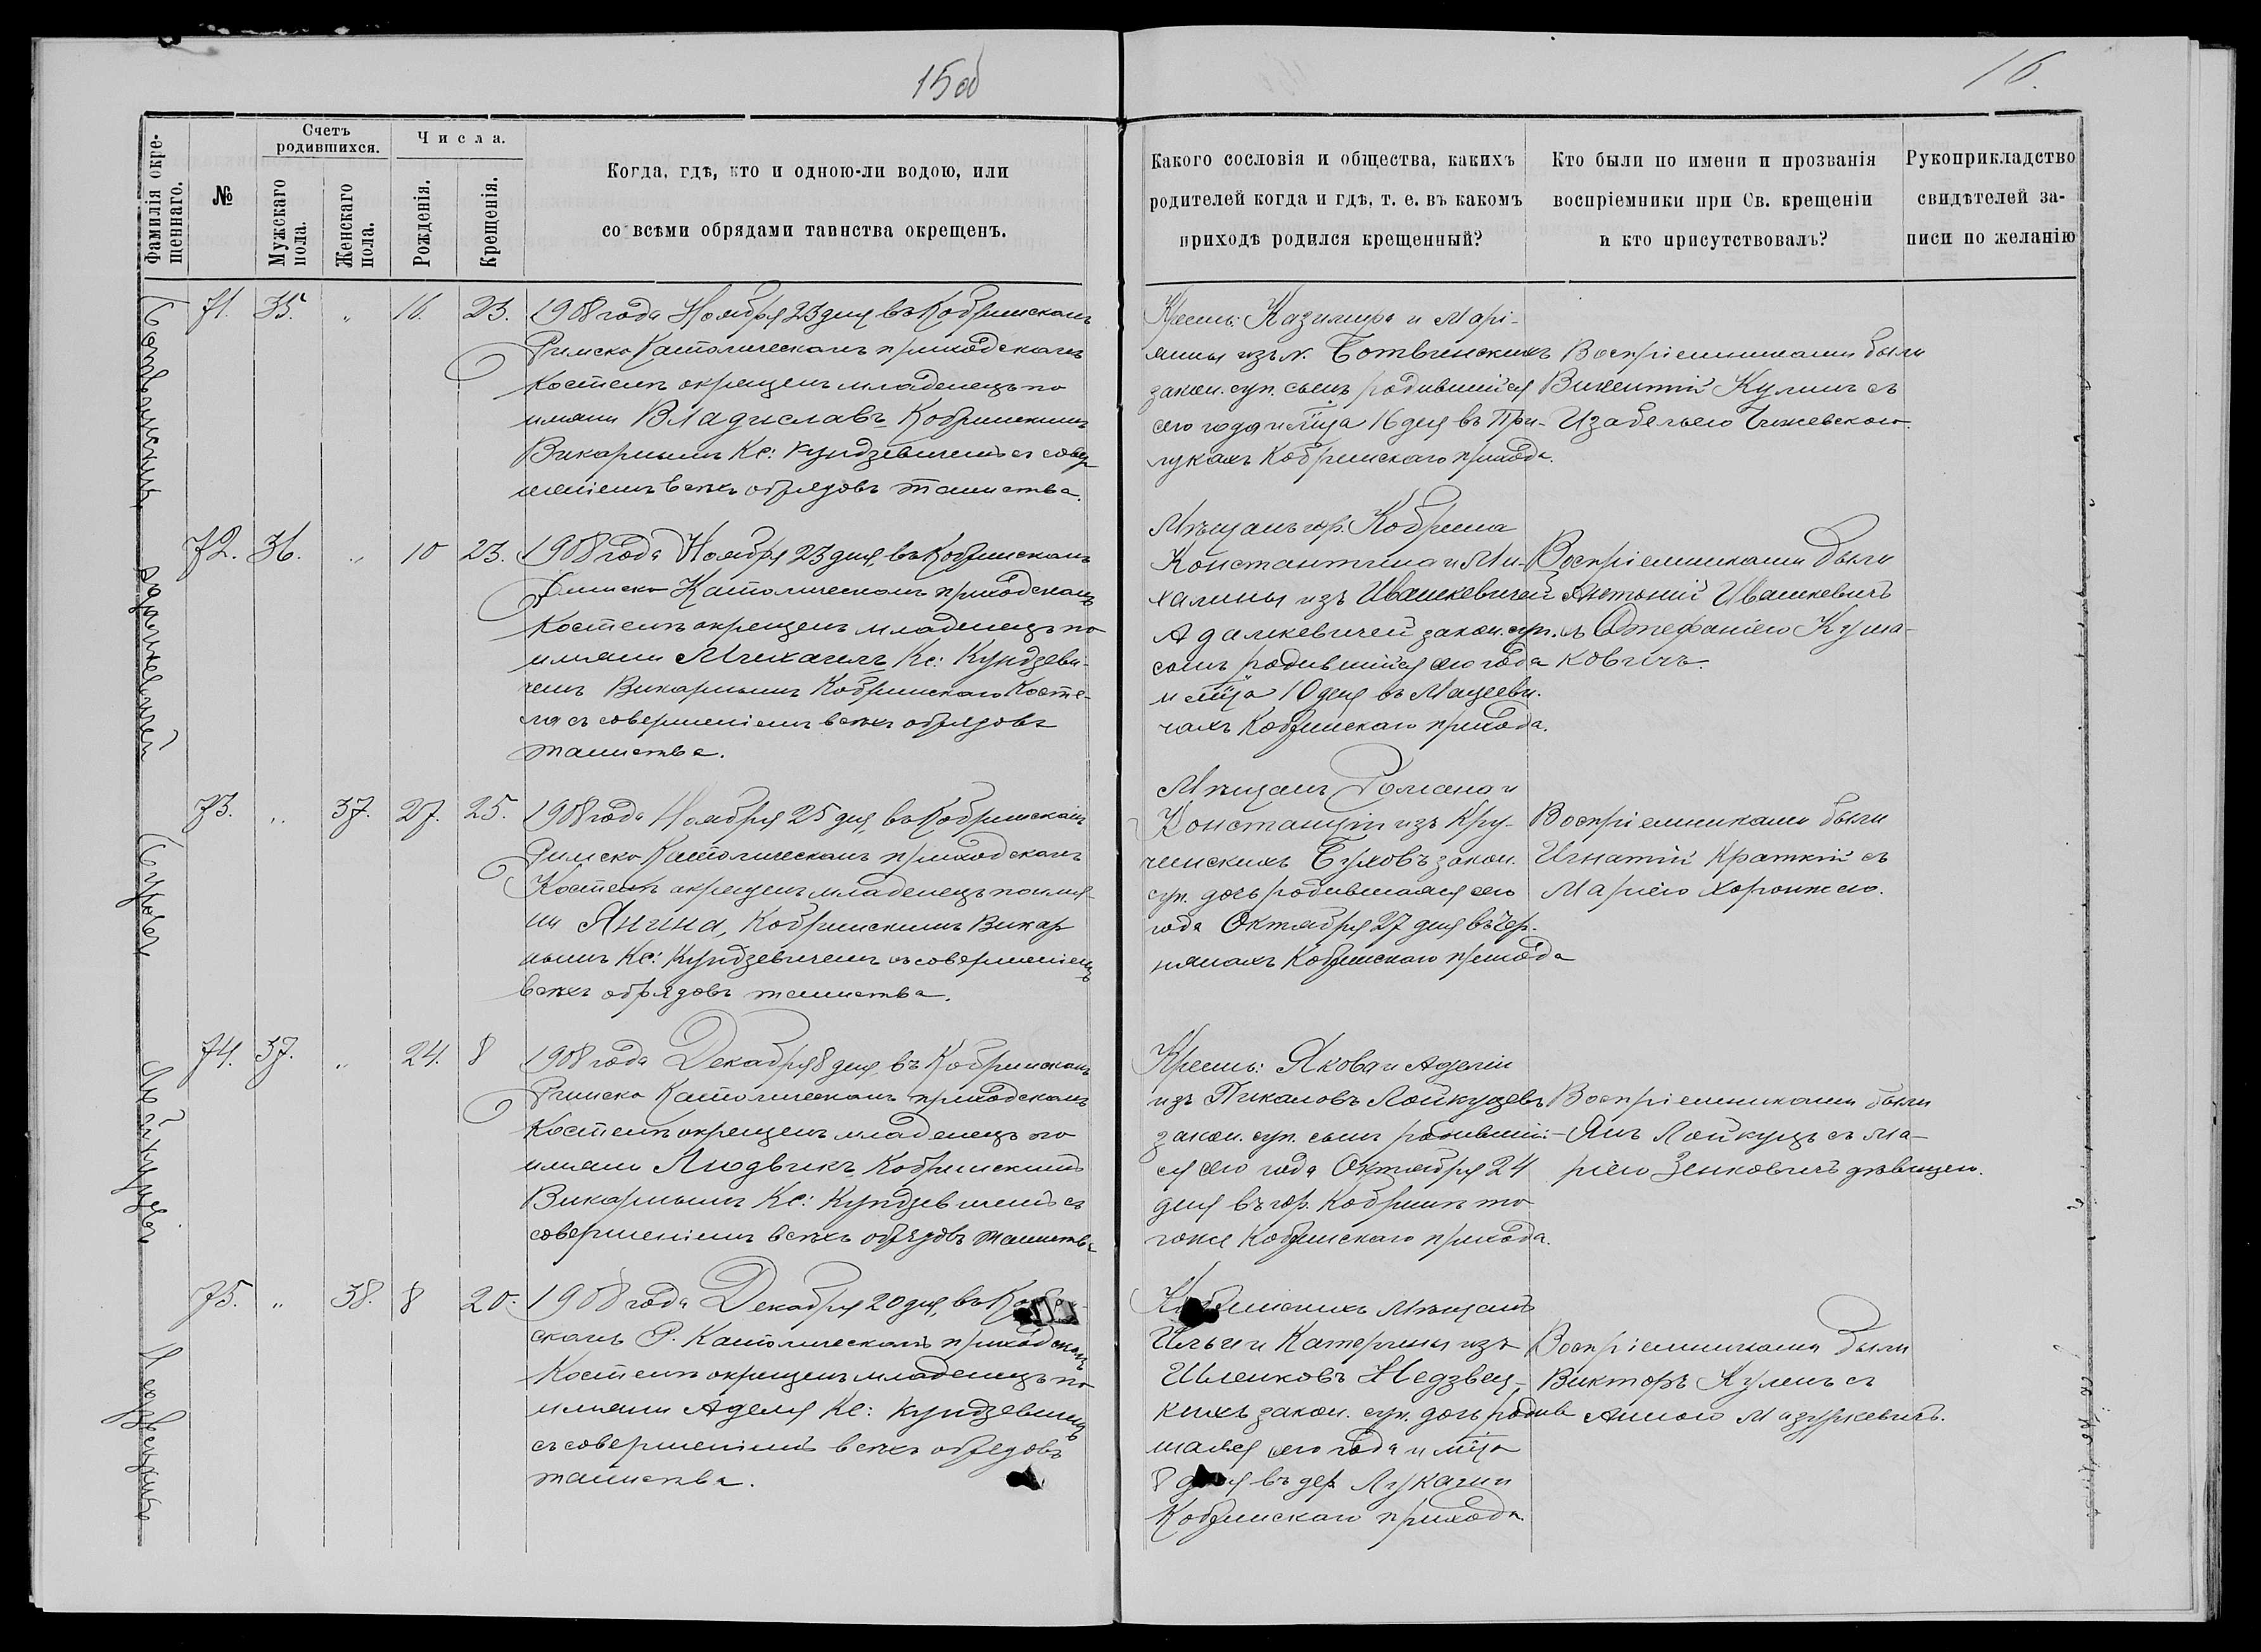 15 об
16.
Фамилія окре-
щеннаго.
№
Счетъ
родившихся.
Мужскаго
пола.
Женскаго
пола.
Числа.
Рожденія.
Крещенія.
Когда, гдѣ, кто и одною-ли водою, или
со всѣми обрядами таинства окрещенъ.
Какого сословія и общества, какихъ
родителей когда и гдѣ, т. е. въ какомъ
приходѣ родился крещенный?
Кто были по имени и прозванія
воспріемники при Св. крещеніи
и кто присутствовалъ?
Рукоприкладство
свидѣтелей за-
писи по желанію
71. 35. „ 16. 23.
1908 года Ноября 23 дня въ Кобринскомъ
Римско Католическомъ приходскомъ
Костелѣ окрещенъ младенецъ по
имени Владиславъ Кобринскимъ
Викарнымъ Кс: Кундзевичемъ съ совер
шеніемъ всѣхъ обрядовъ таинства.
Крест: Казимира и Марі-
янны изъ N. Ботвинскихъ
закон. суп. сынъ родившійся
сего года и мѣца 16 дня въ При-
лукахъ Кобринскаго прихода.
Воспріемниками были
Викентій Кулинъ съ
Изабелью Чижевскою.
72. 36. „ 10 23.
1908 года Ноября 23 дня, въ Кобринскомъ
Римско Католическомъ приходскомъ
Костелѣ окрещенъ младенецъ по
имени Михаилъ Кс: Кундзеви-
чемъ Викарнымъ Кобринскаго Косте-
ла съ совершеніемъ всѣхъ обрядовъ
таинства.
Мѣщанъ гор. Кобрина
Константина и Ми-
халины изъ Ивашкевичей
Адамкевичей закон. суп.
сынъ родившійся сего года
и мѣца 10 дня въ Мацееви-
чахъ Кобринскаго прихода.
Воспріемниками были
Антоній Ивашкевичъ
съ Стефаніею Кума-
ковичъ.
73. „ 37. 27. 25.
1908 года Ноября 25 дня, въ Кобринскомъ
Римско Католическомъ приходскомъ
Костелѣ окрещенъ младенецъ по име-
ни Янина, Кобринскимъ Викар
нымъ Кс: Кундзевичемъ съ совершеніемъ
всѣхъ обрядовъ таинства.
Мѣщанъ Романа и
Констанціи изъ Кру-
чинскихъ Буховъ закон.
суп. дочь родившаяся сего
года Октября 27 дня въ Чер-
нянахъ Кобринскаго прихода
Воспріемниками были
Игнатій Краткій съ
Маріею Хоронжею.
74. 37. „ 24. 8
1908 года Декабря 8 дня, въ Кобринскомъ
Римско Католическомъ приходскомъ
Костелѣ окрещенъ младенецъ по
имени Людвикъ, Кобринскимъ
Викарнымъ Кс: Кундзевичемъ съ
совершеніемъ всѣхъ обрядовъ таинства
Крест: Якова и Аделіи
изъ Пикаловъ Лойкуцевъ
закон. суп. сынъ родившій-
ся сего года Октября 24
дня въ гор. Кобринѣ то
гоже Кобринскаго прихода.
Воспріемниками были
Янъ Лойкуцъ съ Ма-
ріею Зенковичъ дѣвицею.
75. „ 38. 8 20.
1908 года Декабря 20 дня, въ
скомъ Р. Католическомъ приходскомъ
Костелѣ окрещенъ младенецъ по
имени Аделя Кс: Кундзевичемъ
съ совершеніемъ всѣхъ обрядовъ
таинства.
Кобринскихъ Мѣщанъ
Ильи и Катерины изъ
Ивенковъ Недзвец-
кихъ закон. суп. дочь родив
шаяся сего года и мѣца
8 дня въ дер. Луками
Кобринскаго прихода.
Воспріемниками были
Викторъ Кулинъ съ
Анною Мазуркевичъ.
Ботвинскимъ
Адамкевичей
Буховъ
Лойкуцевъ
Недзвецкихъ